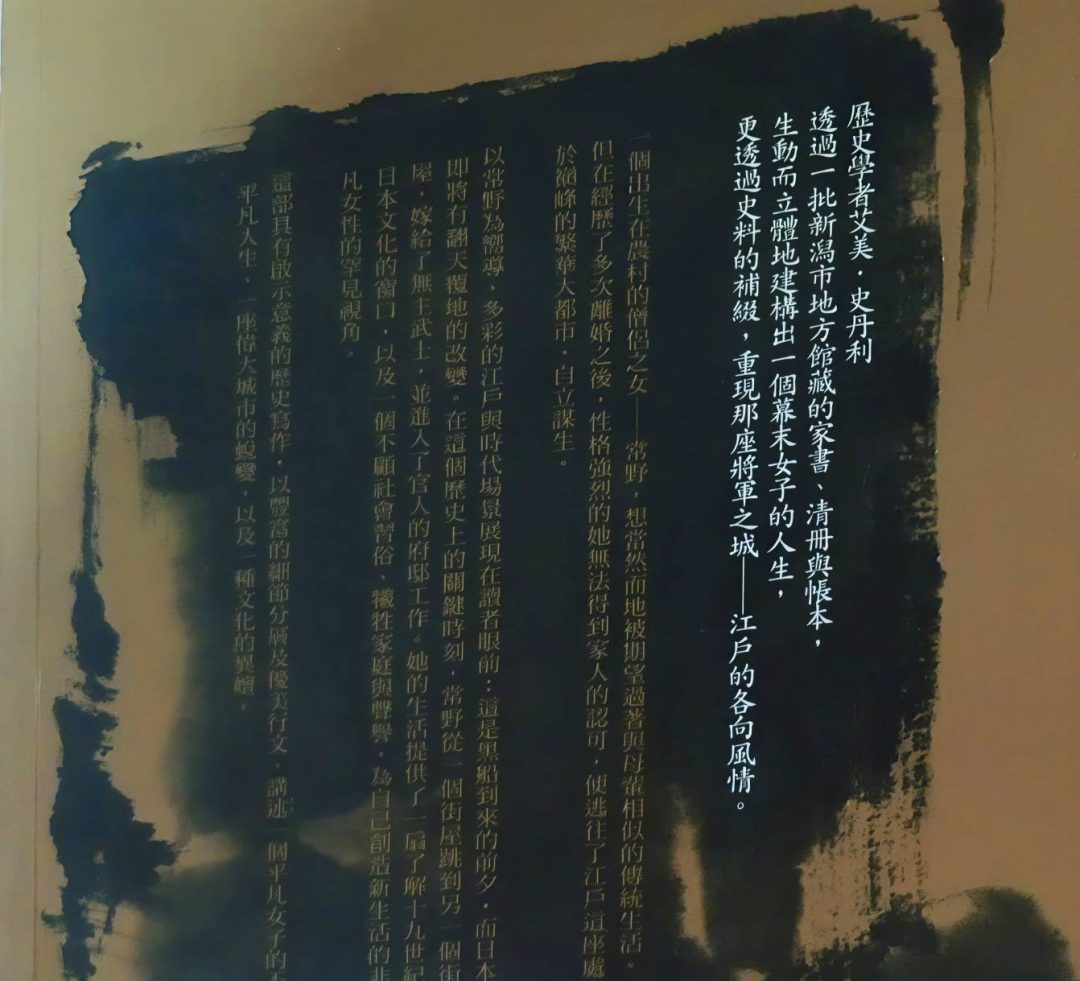 歷史學者艾美．史丹利
透過一批新潟市地方館藏的家書、清冊與帳本，
生動而立體地建構出一個幕末女子的人生，
更透過史料的補綴，重現那座將軍之城——江戶的各向風情。
一個出生在農村的僧侶之女——常野，想當然而地被期望過著與母輩相似的傳統生活。
但在經歷了多次離婚之後，性格強烈的她無法得到家人的認可，便逃往了江戶這座處
於巔峰的繁華大都市，自立謀生。
以常野為嚮導，多彩的江戶與時代場景展現在讀者眼前：這是黑船到來的前夕，而日本
即將有翻天覆地的改變。在這個歷史上的關鍵時刻，常野從一個街屋跳到另一個街
屋，嫁給了無主武士，並進入了官人的府邸工作。她的生活提供了一扇了解十九世紀
日本文化的窗口，以及一個不顧社會習俗、犧牲家庭與聲譽，為自己創造新生活的非
凡女性的罕見視角。
這部具有啟示意義的歷史寫作，以豐富的細節分層及優美行文，講述一個平凡女子的不
平凡人生、一座偉大城市的蛻變，以及一種文化的異嬗，